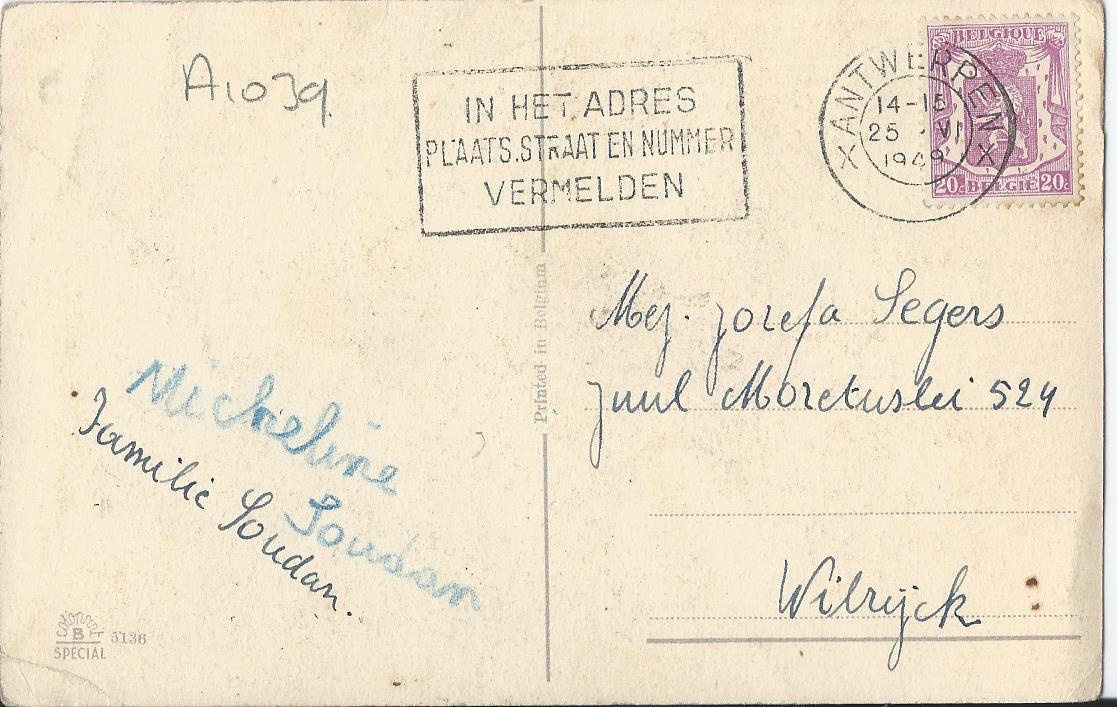 A1039
IN HET ADRES
PLAATS.STRAAT EN NUMMER
VERMELDEN
ANTWERPEN
X X
14-15
25 VI
1949
BELGIQUE
20c BELGIE 20c
Printed in Belgium
Mej. Jozefa Segers
Juul Moretuslei 524
Wilrijck
Micheline
Soudan
Familie Soudan.
COLORPRINT
B
SPECIAL
5136